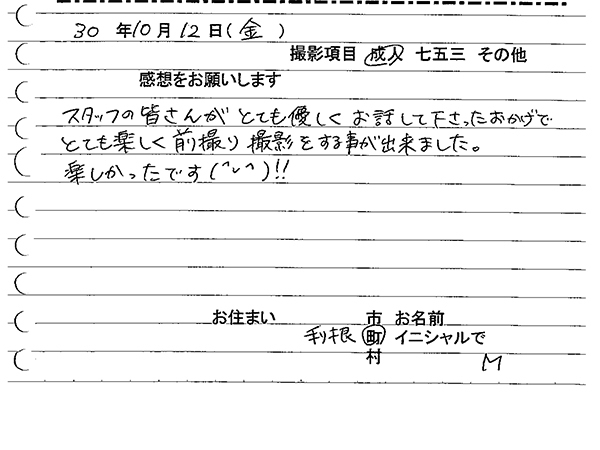 30 年10月12日(金)
撮影項目 成人 七五三 その他
感想をお願いします
スタッフの皆さんが とても優しく お話して下さったおかげで
とても楽しく前撮り撮影をする事が出来ました。
楽しかったです(^ν^)!!
お住まい 市 お名前
利根 町 イニシャルで
村 M